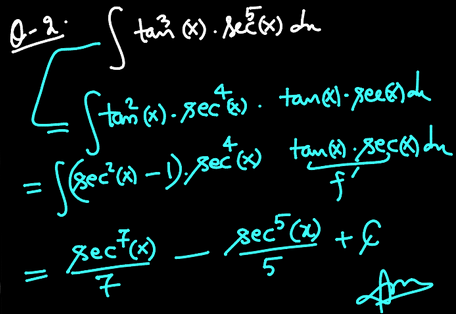 Q-2. ∫ tan³(x) · sec⁵(x) dx
= ∫ tan²(x) · sec⁴(x) · tan(x) · sec(x) dx
= ∫ (sec²(x) − 1) · sec⁴(x) tan(x) · sec(x) dx
f′
= sec⁷(x)/7 − sec⁵(x)/5 + C
Ans